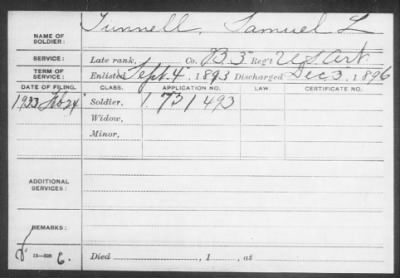 Tunnell, Samuel L
NAME OF SOLDIER:
SERVICE: Late rank, Co. B. 3 Reg't U S Art.
TERM OF SERVICE: Enlisted Sept. 4, 1893 Discharged Dec 3, 1896
DATE OF FILING. CLASS. APPLICATION NO. LAW. CERTIFICATE NO.
1933 Feb 24 Soldier, 1731493
Widow,
Minor,
ADDITIONAL SERVICES:
REMARKS:
6.
Died , 1 , at